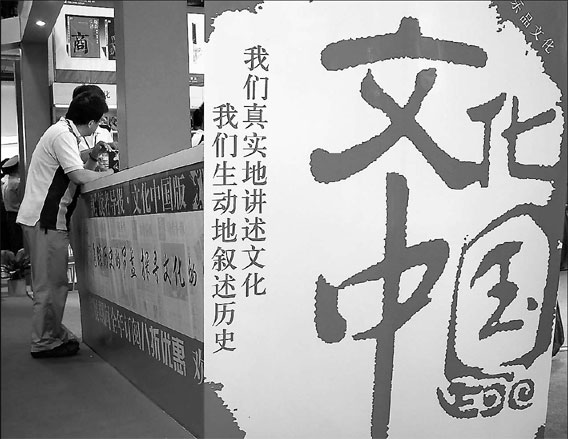 文化
中国
我们真实地讲述文化
我们生动地叙述历史
品文化
商
·文化中国版
文化的
八折优惠